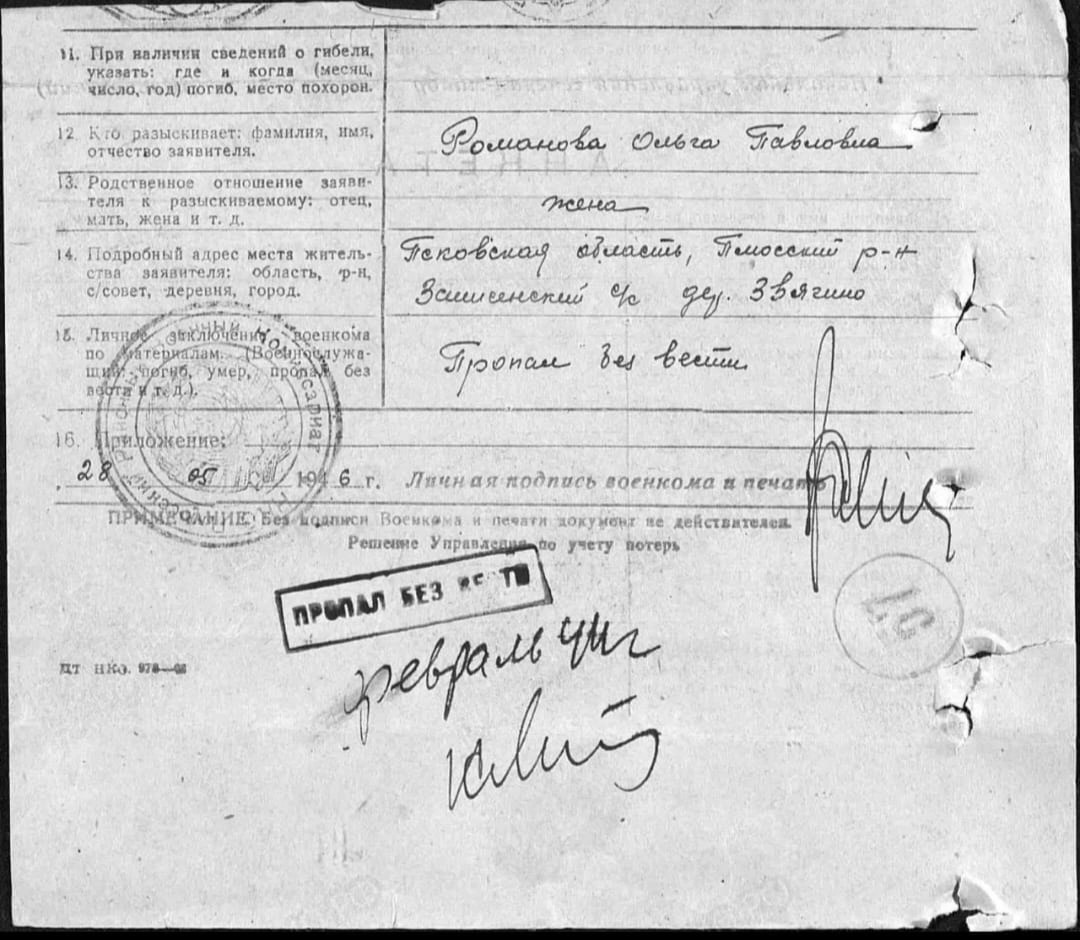 11. При наличии сведений о гибели,
указать: где и когда (месяц,
число, год) погиб, место похорон.
12. Кто разыскивает: фамилия, имя,
отчество заявителя.
Романова Ольга Павловна
13. Родственное отношение заяви-
теля к разыскиваемому: отец,
мать, жена и т. д.
жена
14. Подробный адрес места житель-
ства заявителя: область, р-н,
с/совет, деревня, город.
Псковская область, Плюсский р-н
с/с дер. Звягино
15. Личное заключение военкома
по материалам. (Военнослужа-
щий погиб, умер, пропал без
вести и т. д.).
Пропал без вести
16. Приложение:
28 05 1946 г. Личная подпись военкома и печать
ПРИМЕЧАНИЕ: Без подписи Военкома и печати документ не действителен.
Решение Управления по учету потерь
ПРОПАЛ БЕЗ ВЕСТИ
февраль 44г
НКО. 978—
57